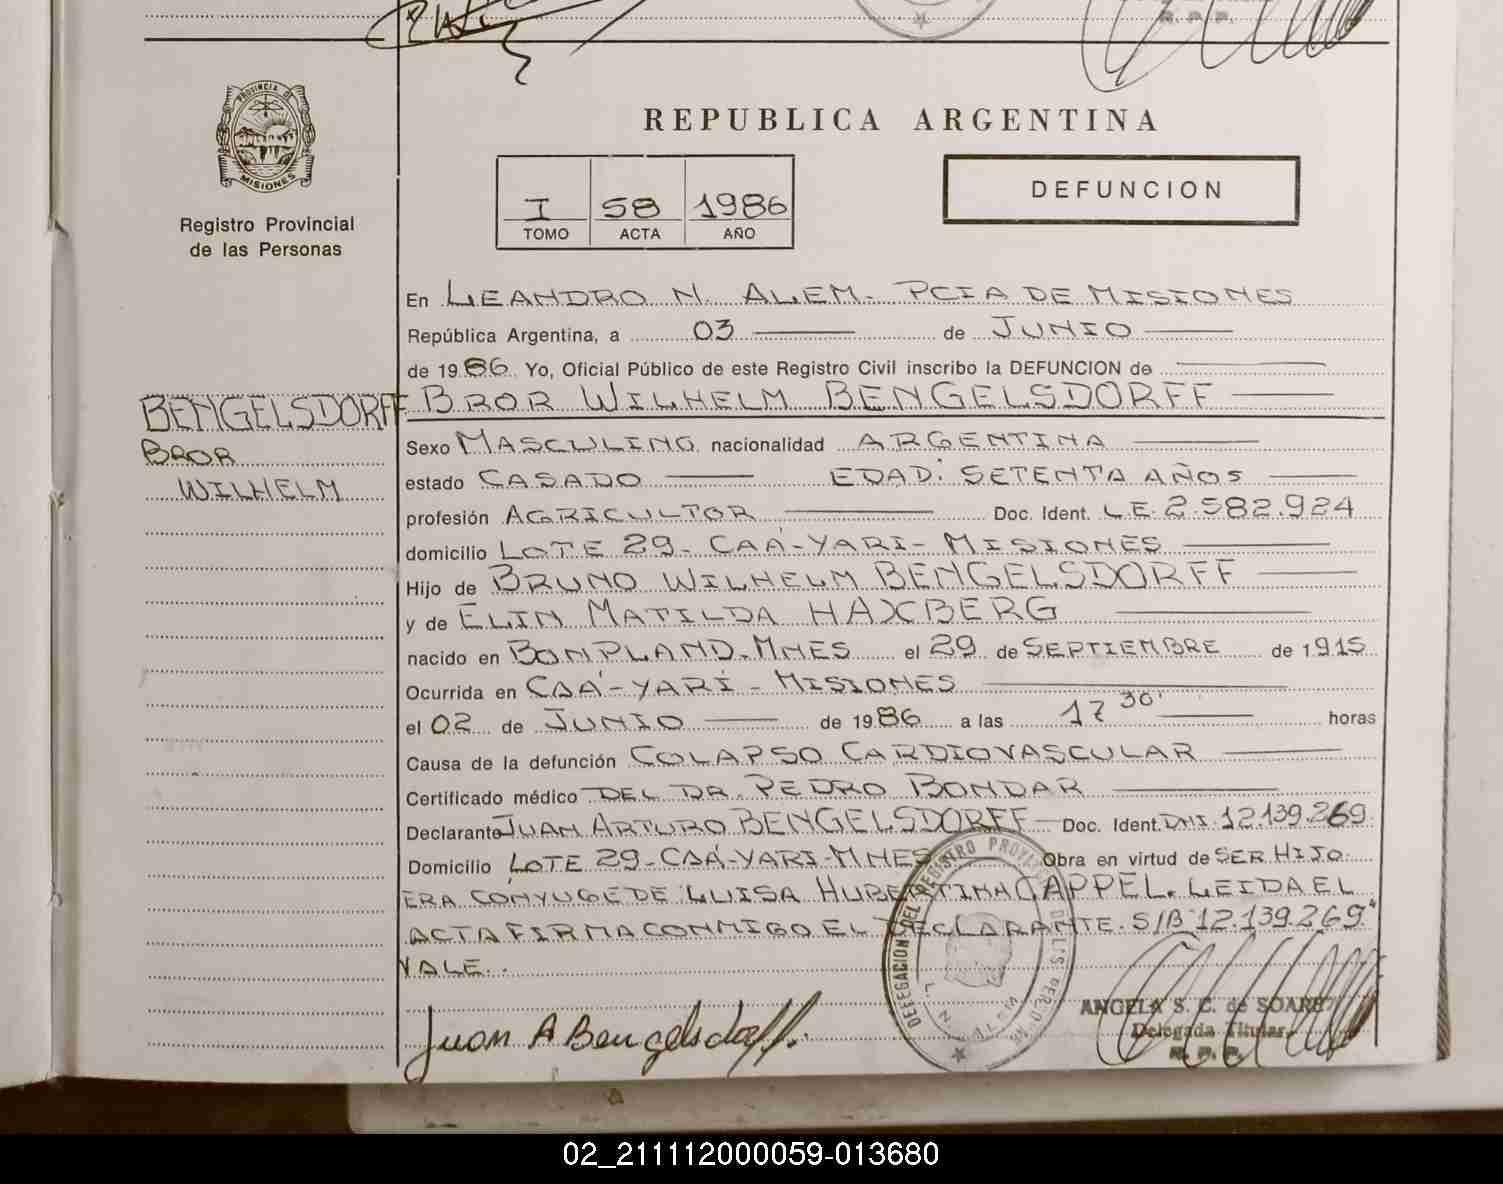 PROVINCIA DE
MISIONES
Registro Provincial
de las Personas
BENGELSDORFF
BROR
WILHELM
REPUBLICA ARGENTINA
I 58 1986
TOMO ACTA AÑO
DEFUNCION
En LEANDRO N. ALEM. PCIA DE MISIONES
República Argentina, a 03 de JUNIO
de 1986 Yo, Oficial Público de este Registro Civil inscribo la DEFUNCION de
BROR WILHELM BENGELSDORFF
Sexo MASCULINO nacionalidad ARGENTINA
estado CASADO EDAD: SETENTA AÑOS
profesión AGRICULTOR Doc. Ident. L.E. 2.582.924
domicilio LOTE 29- CAÁ-YARI- MISIONES
Hijo de BRUNO WILHELM BENGELSDORFF
y de ELIN MATILDA HAXBERG
nacido en BONPLAND. MNES el 29 de SEPTIEMBRE de 1.915
Ocurrida en CAÁ-YARÍ - MISIONES
el 02 de JUNIO de 1986 a las 17 30' horas
Causa de la defunción COLAPSO CARDIOVASCULAR
Certificado médico DEL DR. PEDRO BONDAR
Declarante JUAN ARTURO BENGELSDORFF Doc. Ident. DNI. 12.139.269
Domicilio LOTE 29-CAÁ-YARI-MNES Obra en virtud de SER HIJO
ERA CONYUGE DE LUISA HUBERTINA CAPPEL. LEIDA EL
ACTA FIRMA CONMIGO EL DECLARANTE. S/B "12.139.269"
VALE.
Juan A Bengelsdorff
DELEGACION DEL REGISTRO PROVINCIAL DE LAS PERSONAS
L. N. ALEM
ANGELA S. C. de SOAREZ
Delegada Titular
R. P. P.
02_211112000059-013680